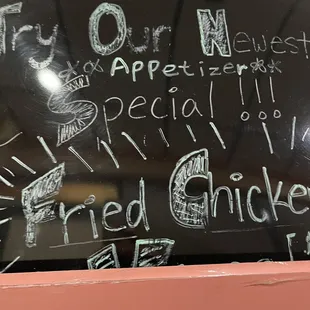 Try Our Newest
Appetizer
Special !!!
Fried Chicken